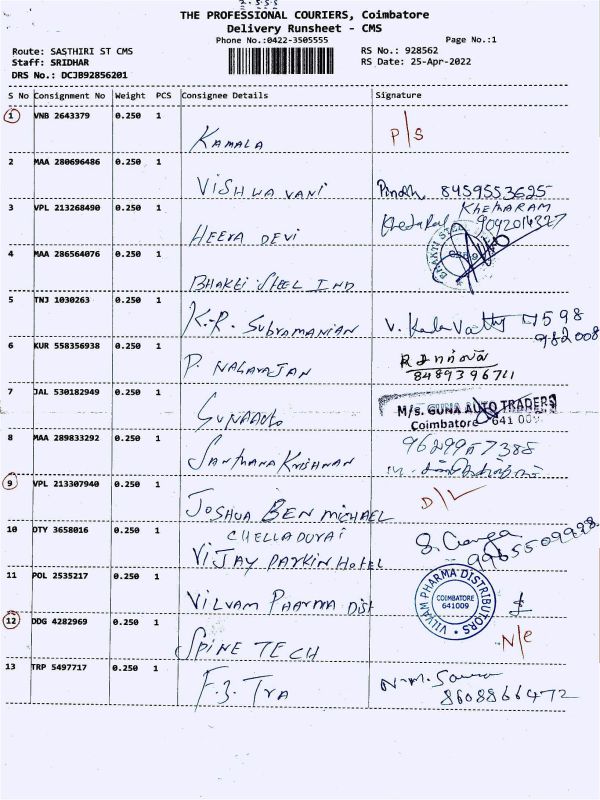 THE PROFESSIONAL COURIERS, Coimbatore
Delivery Runsheet - CMS
Phone No.:0422-3505555
Page No.:1
Route: SASTHIRI ST CMS
RS No.: 928562
Staff: SRIDHAR
RS Date: 25-Apr-2022
DRS No.: DCJB92856201
S No Consignment No Weight PCS Consignee Details Signature
1 VNB 2643379 0.250 1 KAMALA P/S
2 MAA 280696486 0.250 1 VISHWA VANI 8459553625
3 VPL 213268490 0.250 1 HEERA DEVI KHEMARAM
9092014327
4 MAA 286564076 0.250 1 BHAKTI STEEL IND
BHAKTI STEEL
5 TNJ 1030263 0.250 1 K.R. SUBRAMANIAN V.
6 KUR 558356938 0.250 1 P. NAGARAJAN
8489396711
7 JAL 530182949 0.250 1 M/s. GUNA AUTO TRADERS
Coimbatore 641 009
8 MAA 289833292 0.250 1 SANTHANA KRISHNAN
9 VPL 213307940 0.250 1 JOSHUA BEN MICHAEL D/L
CHELLADURAI
10 DTY 3658016 0.250 1 VIJAY PARKIN HOTEL
9965509998
11 POL 2535217 0.250 1 VILVAM PHARMA DIST
VILVAM PHARMA DISTRIBUTORS
COIMBATORE
641009
12 DDG 4282969 0.250 1 SPINE TECH N/e
13 TRP 5497717 0.250 1 N.M.
8608866472